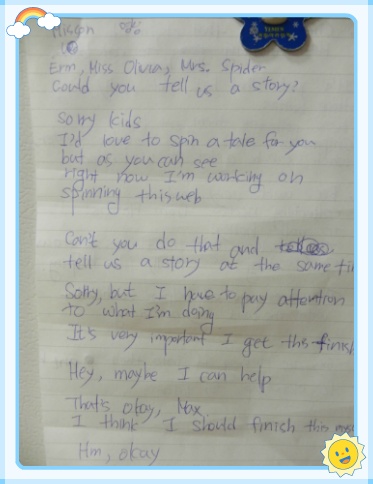 Erin, Miss Olivia, Mrs. Spider
Could you tell us a story?
Sorry kids
I'd love to spin a tale for you
but as you can see
right now I'm working on
spinning this web
Can't you do that and
tell us a story at the same
Sorry, but I have to pay attention
to what I'm doing
It's very important I get this finish
Hey, maybe I can help
That's okay, Max
I think I should finish this
Hm, okay